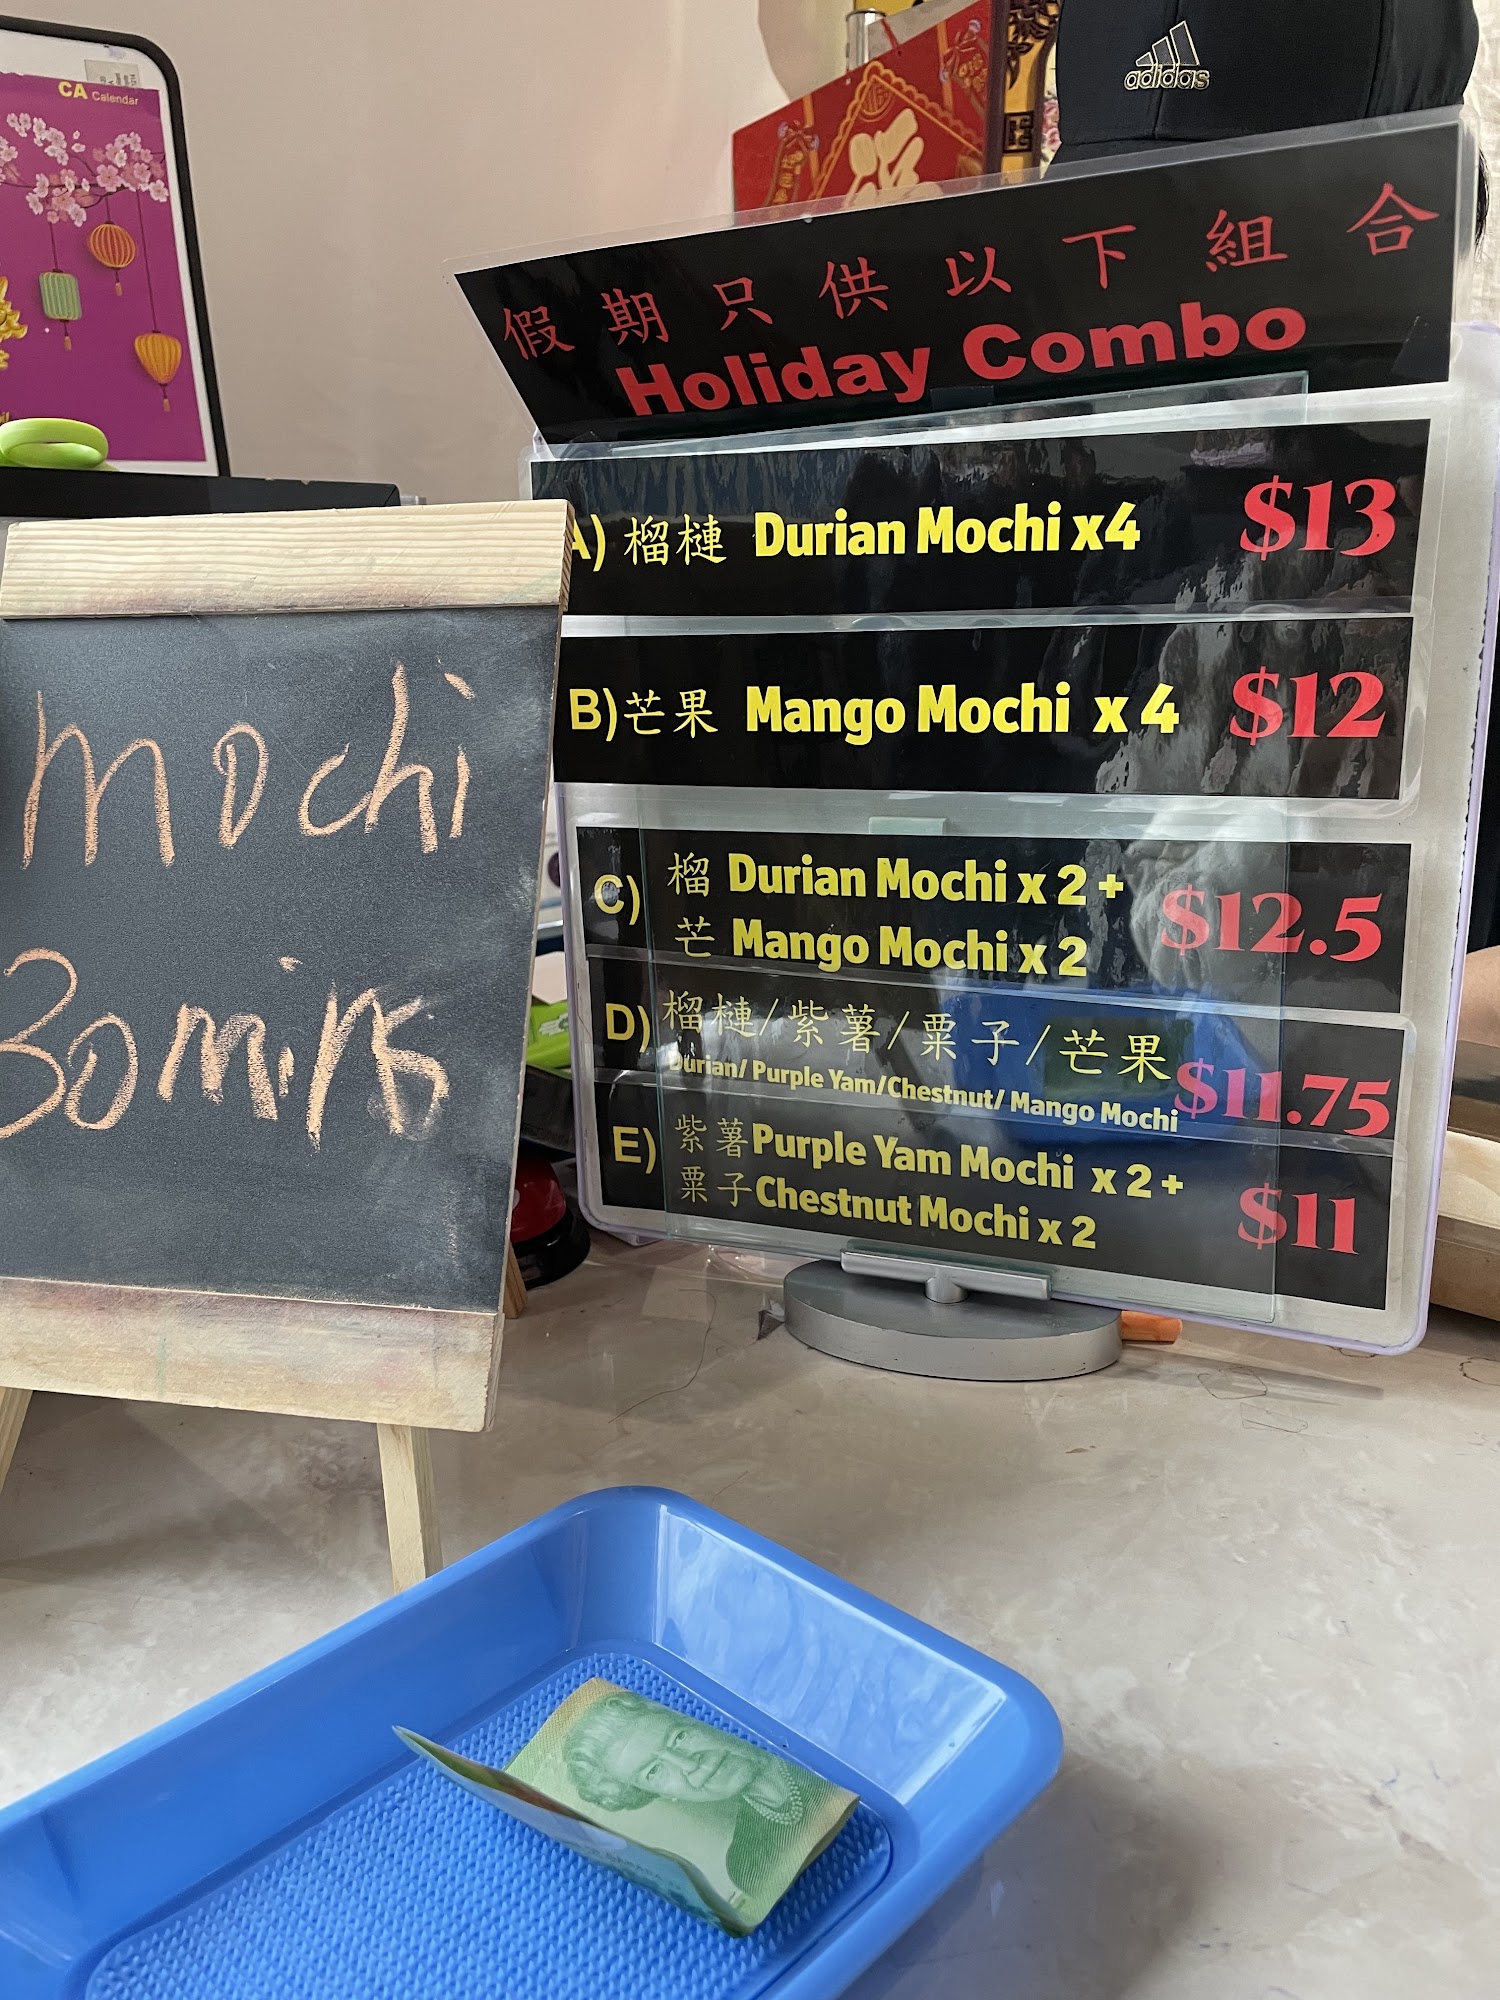 CA Calendar
adidas
假期只供以下組合
Holiday Combo
A) 榴槤 Durian Mochi x4 $13
B) 芒果 Mango Mochi x 4 $12
C) 榴 Durian Mochi x 2 +
芒 Mango Mochi x 2 $12.5
D) 榴槤/紫薯/粟子/芒果
Durian/ Purple Yam/Chestnut/ Mango Mochi $11.75
E) 紫薯 Purple Yam Mochi x 2 +
粟子 Chestnut Mochi x 2 $11
mochi
30mins